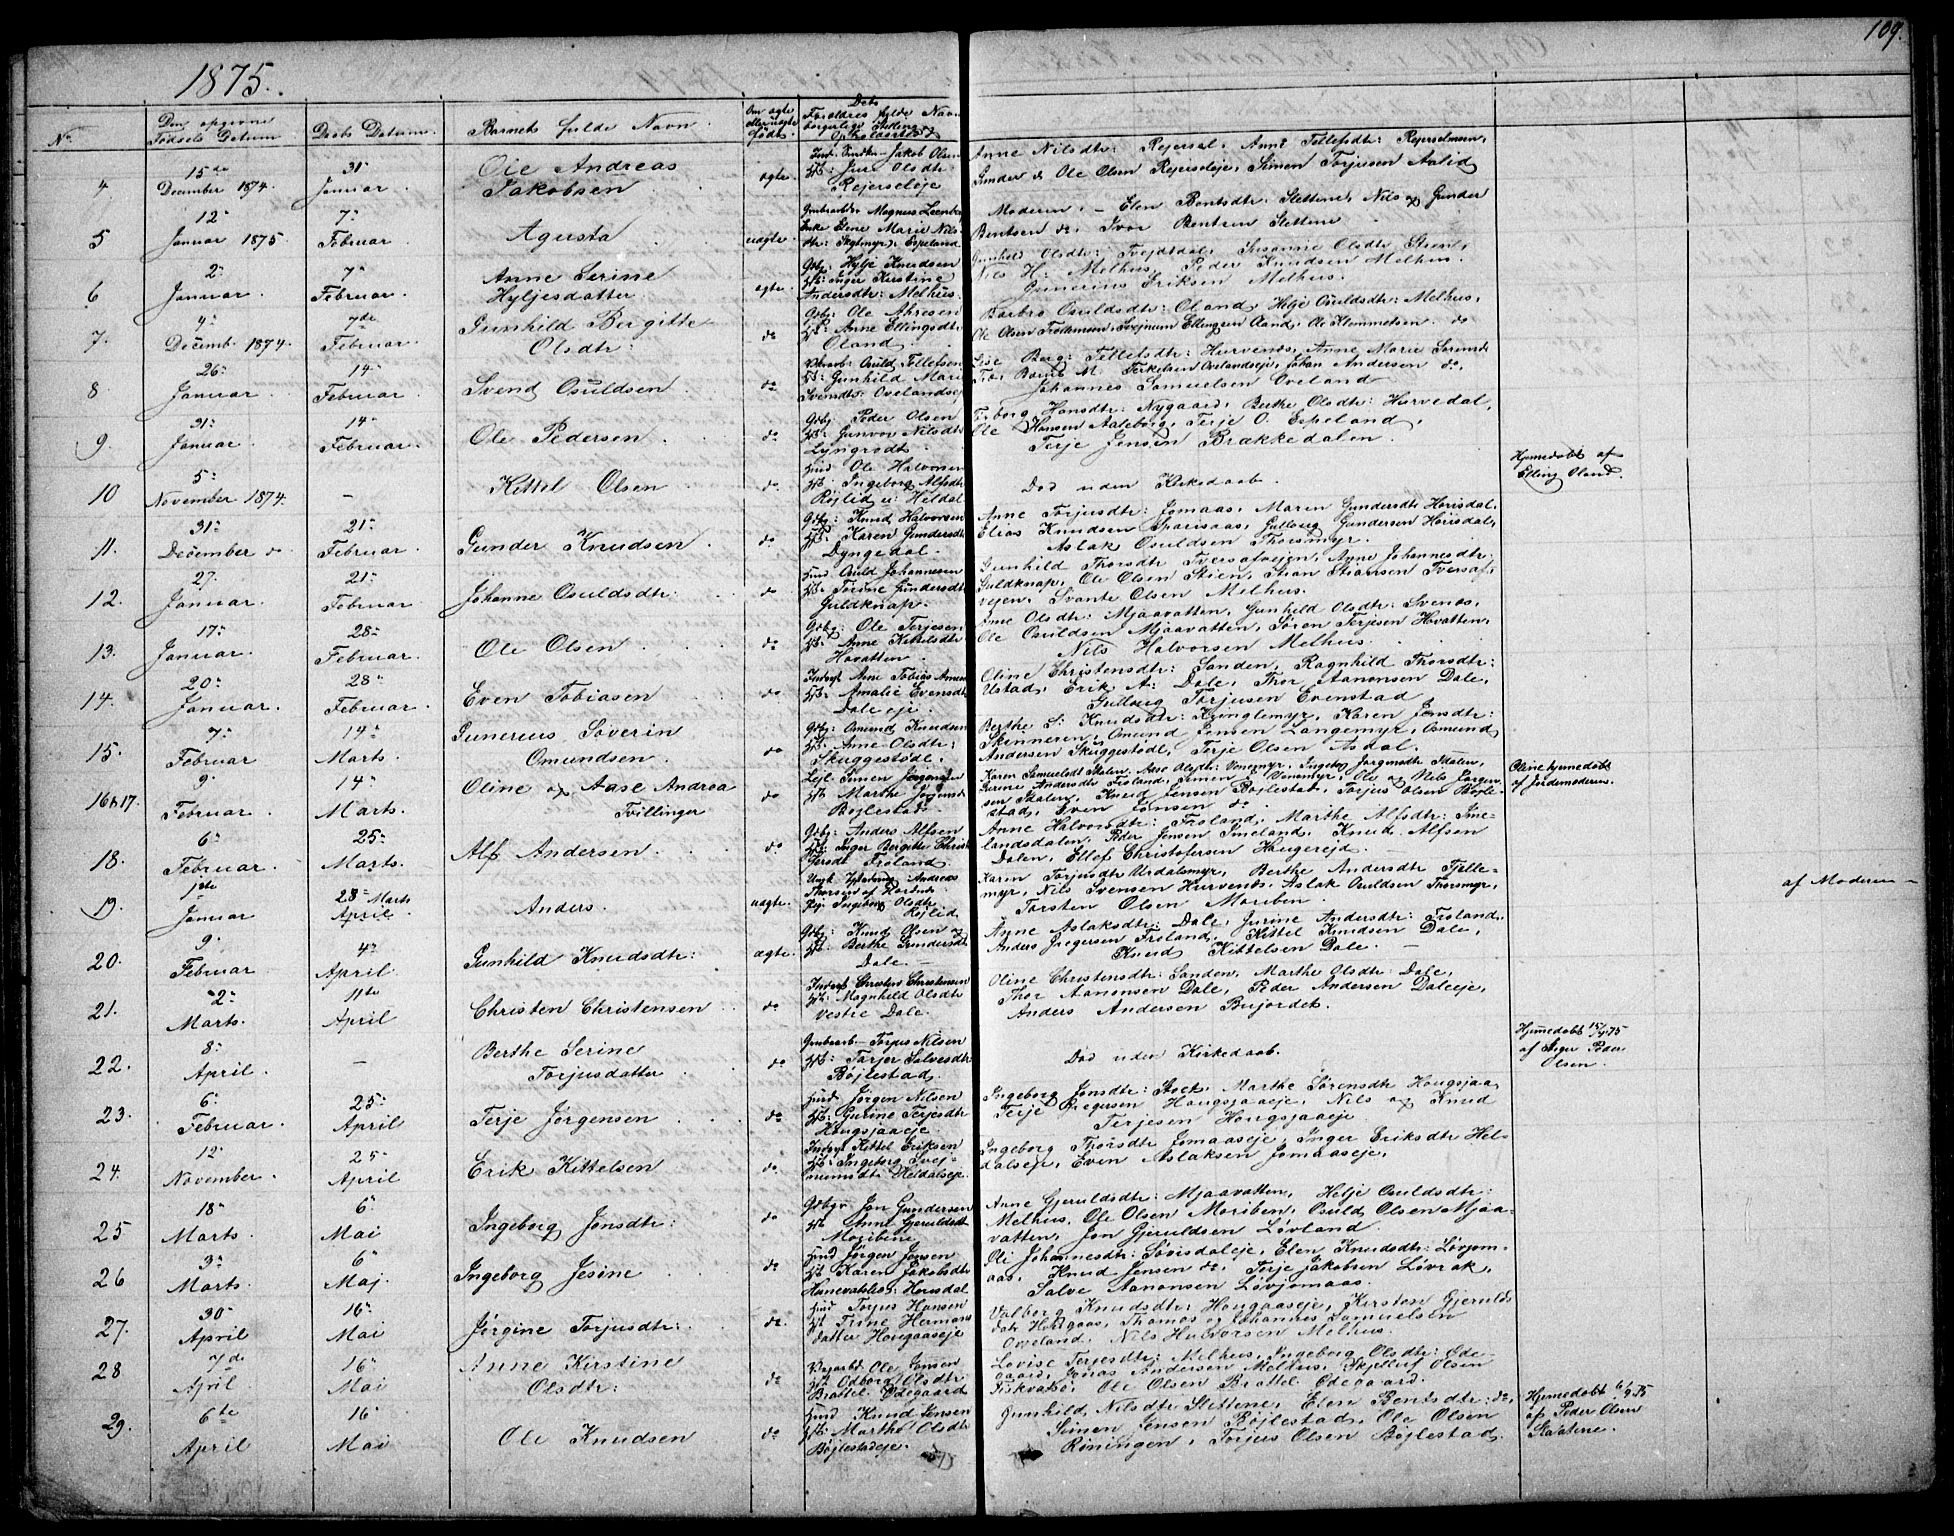 109.
1875.
No.
Den opgivne Fødsels Datum
Daabs Datum.
Barnets fulde Navn.
Om ægte eller uægte født.
Dets Forældres fulde Navn borgerlige Stilling og Bopælssted
4
15de December 1874.
31 Januar.
Ole Andreas Jakobsen
ægte.
Jakob Olsen
Jur. Olsdtr
Rejerseleje
Anne Nilsdtr: Rejersøl, Anne Tellefsdtr: Rejerselmoen,
Gunder & Ole Olsen Rejerseleje, Simen Torjusen Aalid
5
12 Januar 1875.
7 Februar.
Agusta
uægte.
Magnus
Enke Elene Marie Nils
dtr: Skytmyr: Espeland
Moderen. – Elen Bentsdtr: Slettene, Nils og Gunder
Bentsen do, Ivor Bentsen Slettene
6
2 Januar.
7 Februar.
Anne Serine Hyljesdatter
ægte.
Gdbg: Hylje Knudsen
H: Inger Kirstine
Andersdtr: Melhus.
Gunhild Olsdtr: Tvejtsdal, Susanne Olsdtr Stien,
Nils H: Melhus, Peder Knudsen Melhus.
Gunerius Eriksen Melhus.
7.
4 Decemb. 1874.
7de Februar.
Gunhild Bergitte Olsdtr:
do
Gdbg: Ole
H: Anne Ellingsdtr
Oland.
Barbro Osuldsdtr: Oland, Helje Osuldsdtr: Melhus,
Ole Olsen Trollemoen, Svejnum Ellingsen Oland, Ole Klemmetsen do
8
26 Januar.
14 Februar.
Svend Osuldsen
do
Osuld Tellefsen
H: Gunhild Marie
Svendsdtr: Ovelandseje
Lise Berg: Tellefsdtr: Hurvenes, Anne Marie Sørensd
M. Terkelsen Ovelandseje, Johan Andersen do,
Johannes Samuelsen Oveland
9.
31 Januar.
14 Februar.
Ole Pedersen
do
Gdbg. Peder Olsen
H: Gunvor Nilsdtr
Lyngrodt.
Torborg Hansdtr: Nygaard, Berthe Olsdtr: Hurvedal,
Ole Hansen Aaleborg, Terje O. Espeland,
Terje Jensen Brækkedalen.
10
5 November 1874.
–
Kittel Olsen
do
Husd. Ole Halvorsen
H: Ingeborg Alfsdtr
Røjlid u: Heldal
Død uden Kirkedaab.
Hjemedøbt af
Elling Oland.
11.
31 December do
21 Februar
Gunder Knudsen
do
Gdbg: Knud Halvorsen
H: Karen Gundersdtr
Dyngedal.
Anne Torjusdtr: Jomaas, Maren Gundersdtr Horisdal,
Elias Knudsen Sparisaas, Gullaug Gundersen Horisdal,
Aslak Osuldsen Thorsmyr.
12.
27. Januar.
21 Februar
Johanne Osuldsdtr:
do
Husd. Osuld Johannesen
H: Torine Gundersdtr
Guldknap.
Gunhild Thorsdtr Tversafvejen, Anne Johannesdtr:
Guldknap, Ole Olsen Stien, Stian Stiansen Tversaf-
vejen, Svante Olsen Melhus.
13.
17 Januar.
28 Februar
Ole Olsen
do
Gdbg: Ole Terjesen
H: Anne Kittilsdtr
Hovatten.
Anne Olsdtr: Mjaavatten, Gunhild Olsdtr: Svenes,
Ole Osuldsen Mjaavatten, Søren Terjesen Hovatten,
Nils Halvorsen Melhus.
14.
20 Januar.
28 Februar.
Even Tobiasen
do
Inds. Arne Tobias
H: Amalie Evensdtr
Daleeje.
Oline Christensdtr: Sanden, Ragnhild Thorsdtr:
Ustad, Erik A: Dale, Thor Aanonsen Dale,
Gullaug Torjusen Evenstad
15.
7 Februar
14 Marts.
Gunereus Severin Omundsen
do
Gdbg: Omund Knudsen
H: Anne Olsdtr:
Skuggestøle.
Berthe S: Knudsdtr: Kringlemyr, Karen Jensdtr:
Skinneren, Omund Jensen Langemyr, Osmund
Andersen Skuggestøle, Terje Olsen Asdal.
16 & 17.
9 Februar
14 Marts.
Oline og Aase Andrea Tvillinger
do
Lejl. Simen Jørgensen
H: Marthe Jensd
Bøjlestad
Karen Samuelsdt Stalen, Aase Olsdtr: Vonemyr, Ingeborg Jørgensdtr Stalen,
Serine Andersdtr Froland, Simen Vonemyr, Ole og Nels Jørgen-
sen Stalen, Knud Jensen Bøjlestad, Torjus Olsen Bøjle-
stad, Even Jensen do
Oline hjemedøbt
af Jordemoderen
18.
6 Februar.
25 Marts.
Alf Andersen.
do
Gdbg: Anders Alfsen
H: Inger Bergitte Christ
Froland.
Anne Halvorsdtr: Froland, Marthe Alfsdtr: Sme-
landsdalen, Peder Jensen Smeland, Knud Alfsen
Dalen, Ellef Christofersen Haugereid.
19.
1ste Januar
28 Marts April
Anders.
uægte.
Andreas
Thorsen af
Pig. Ingeborg Olsdtr
Røjlid
Karen Torjusdtr Urdalsmyr, Berthe Andersdtr Fjelle-
myr, Nils Svensen Hurvenes, Aslak Osuldsen Thorsmyr,
Torsten Olsen Moriben.
af Moderen –
20.
9. Februar
4 April
Gunhild Knudsdtr:
ægte.
Gdbg: Knud Olsen og
H: Berthe Gundersdtr
Dale.
Anne Aslaksdtr: Dale, Jurine Andersdtr: Froland,
Anders Gregersen Froland, Kittel Knudsen Dale,
Knud Kittelsen Dale.
21.
2 Marts.
11te April
Christen Christensen
do
Inds. Christen Christensen
H: Magnhild Olsdtr
Vestre Dale.
Oline Christensdtr: Sanden, Marthe Olsdtr: Dale,
Thor Aanonsen Dale, Peder Andersen Daleeje,
Anders Andersen Bujordet.
22.
8 April.
–
Berthe Serine Torjusdatter
do
Grubearb. Torjus Nilsen
H: Torjer Salvesdtr
Bøjlestad.
Død uden Kirkedaab.
Hjemedøbt 15/4 75
af Peder
Olsen.
23.
6 Februar.
25 April
Terje Jørgensen
do
Husd. Jørgen Nilsen
H: Gurine Terjesdtr
Hougsjaaeje.
Ingeborg Jonsdtr: Stoet, Marthe Sørensdtr Hougsjaa,
Terje Gregersen Hougsjaaeje, Nils og Knud
Terjesen Hougsjaaeje
24.
12 November.
25 April
Erik Kittelsen
do
Inds. Kittel Eriksen
H: Ingeborg Svej-
numsdtr Heldalseje.
Ingeborg Thorsdtr Jomaaseje, Inger Eriksdtr Hel-
dalseje, Even Aslaksen Jomaaseje,
25
18 Marts.
6 Mai
Ingeborg Jonsdtr:
do
Gdbgr Jon Gundersen
H: Anne Gjeruldsdtr
Moribene
Anne Gjeruldsdtr: Mjaavatten, Helje Osuldsdtr:
Melhus, Ole Olsen Moriben, Osuld Olsen Mjaa-
vatten, Jon Gjeruldsen Løvland.
26
3 Marts.
6 Maj
Ingeborg Jesine
do
Husd Jørgen Jensen
H: Karen Jakobsdtr
Horisdal
Oli Johannesdtr: Sørisdaleje, Elen Knudsdtr: Løvjom-
aas, Knud Jensen do, Terje Jakobsen Løvrak,
Salve Aanonsen Løvjomaas.
27.
30 April
16 Mai
Jørgine Torjusdtr:
do
Husd Torjus Hansen
H: Trine Hermans
datter Hougaaseje
Valborg Knudsdtr: Hougaaseje, Kirsten Gjerulds
datr Hougaas, Thomas og Johannes Samuelsen
Oveland, Nils Halvorsen Melhus.
28
7de April
16 Mai
Anne Kirstine Olsdtr:
do
Ole Jensen
H: Odborg Olsdtr
Brattel. Ødegaard
Lovise Terjesdtr: Melhus, Ingeborg Olsdtr: Øde-
gaard, Jonas Andersen Melhus, Skjellerf Olsen
Fiskvatn, Ole Olsen Brattel. Ødegaard.
29.
6te April
16 Mai
Ole Knudsen
do
Husd. Knud Jensen
H: Marthe Olsdtr
Bøjlestadeje.
Gunhild, Nilsdtr Slettene, Elen Bentsdtr: do,
Simen Jensen Bøjlestad, Ole Olsen
Røningen, Torjus Olsen Bøjlestad.
Hjemedøbt 6/4 75
af Peder Olsen
Slaatene.